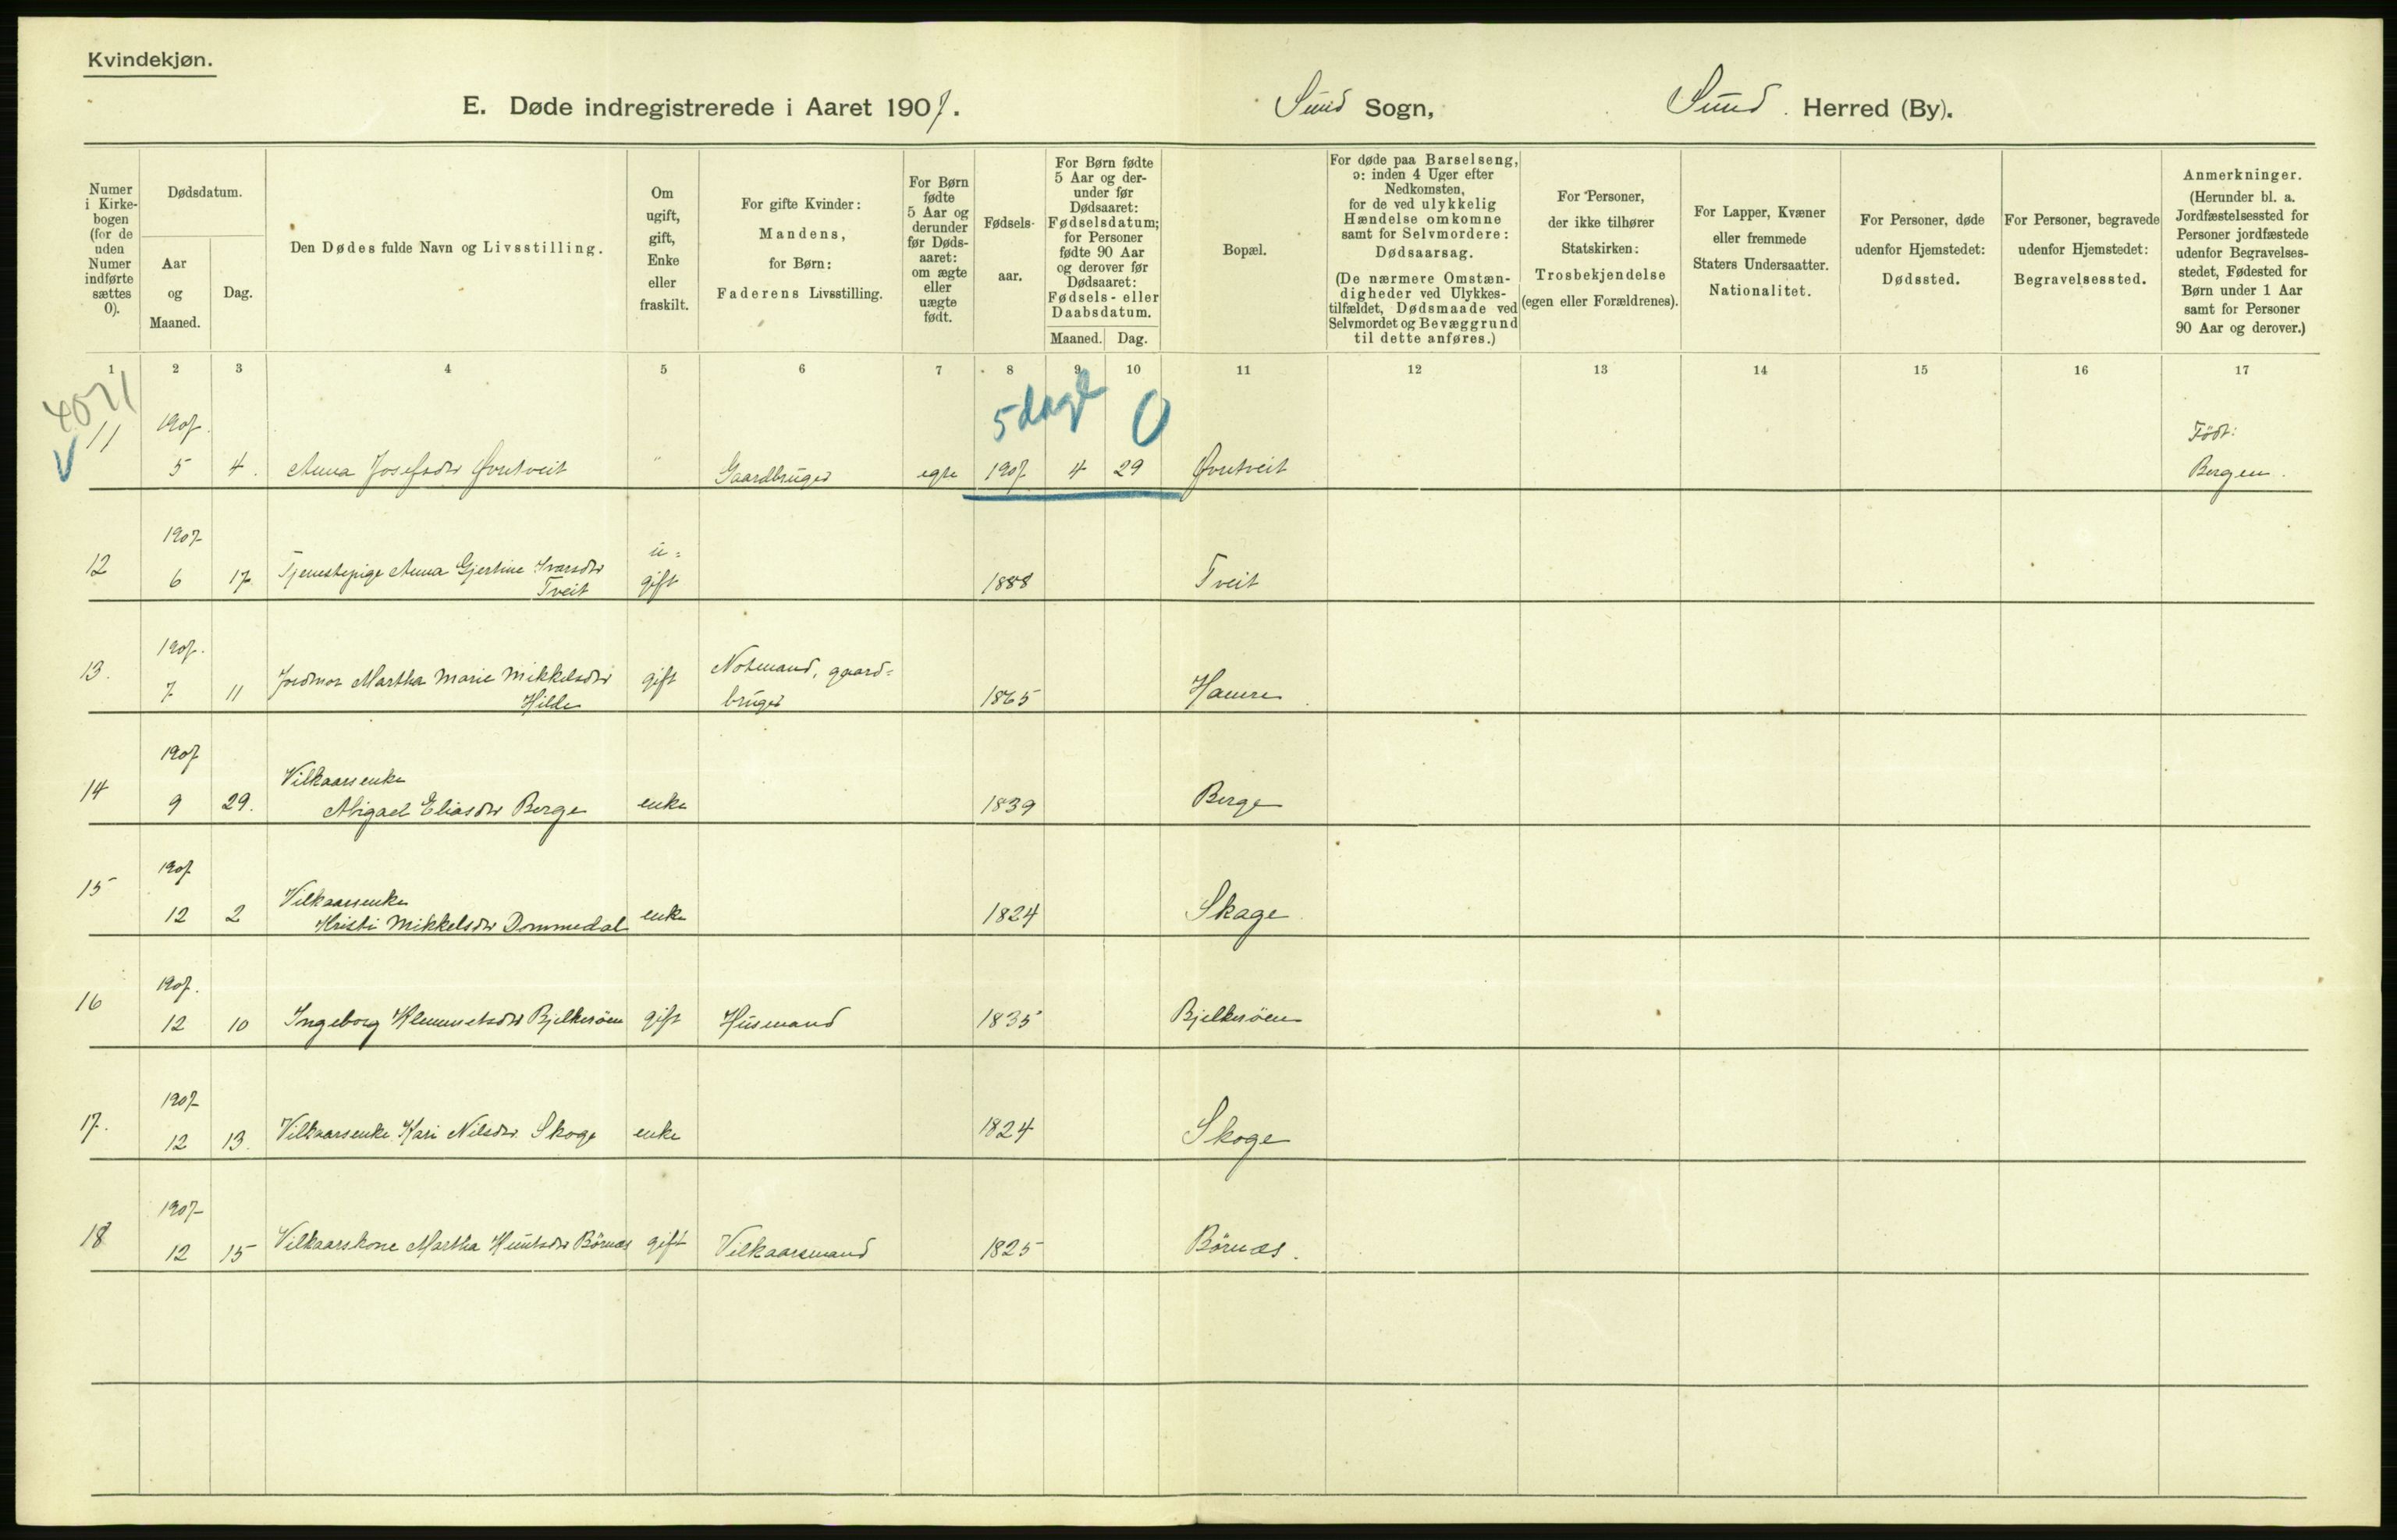 Kvindekjøn.
E. Døde indregistrerede i Aaret 1907. Sund Sogn, Sund Herred (By).
Numer i Kirkebogen (for de uden Numer indførte sættes 0).
Dødsdatum.
Aar og Maaned.
Dag.
Den Dødes fulde Navn og Livsstilling.
Om ugift, gift, Enke eller fraskilt.
For gifte Kvinder: Mandens, for Børn: Faderens Livsstilling.
For Børn fødte 5 Aar og derunder før Dødsaaret: om ægte eller uægte født.
Fødselsaar.
For Børn fødte 5 Aar og derunder før Dødsaaret: Fødselsdatum; for Personer fødte 90 Aar og derover før Dødsaaret: Fødsels- eller Daabsdatum.
Maaned. Dag.
Bopæl.
For døde paa Barselseng, ɔ: inden 4 Uger efter Nedkomsten, for de ved ulykkelig Hændelse omkomne samt for Selvmordere: Dødsaarsag.
(De nærmere Omstændigheder ved Ulykkestilfældet, Dødsmaade ved Selvmordet og Bevæggrund til dette anføres.)
For Personer, der ikke tilhører Statskirken: Trosbekjendelse (egen eller Forældrenes).
For Lapper, Kvæner eller fremmede Staters Undersaatter. Nationalitet.
For Personer, døde udenfor Hjemstedet: Dødssted.
For Personer, begravede udenfor Hjemstedet: Begravelsessted.
Anmerkninger.
(Herunder bl. a. Jordfæstelsessted for Personer jordfæstede udenfor Begravelsesstedet, Fødested for Børn under 1 Aar samt for Personer 90 Aar og derover.)
1 2 3 4 5 6 7 8 9 10 11 12 13 14 15 16 17
5 dage 0
11 1907. Födt:
5 4. Anna Josefsdtr Øvretveit " Gaardbruger egte 1907 4 29 Øvretveit Bergen.
12 1907 u=
6 17 Tjenestepige Anna Gjertine Ivarsdtr Tveit gift 1888 Tveit
13. 1907.
7 11 Jordmor Martha Marie Mikkelsdtr Hilde gift Notmand, gaardbruger 1865 Hamre
14 1907 Vilkaarsenke
9 29. Abigael Eliasdtr Berge enke 1839 Berge
15 1907 Vilkaarsenke
12 2 Kristi Mikkelsdtr Dommedal enke 1824 Skage
16 1907.
12 10 Ingeborg Klemmetsdtr Bjelkeröen gift Husmand 1835 Bjelkeröen
17. 1907
12 13. Vilkaarsenke Kari Nilsdtr. Skoge enke 1824 Skoge
18 1907
12 15 Vilkaarskone Martha Knutsdtr Börnæs gift Vilkaarsmand 1825 Börnæs.